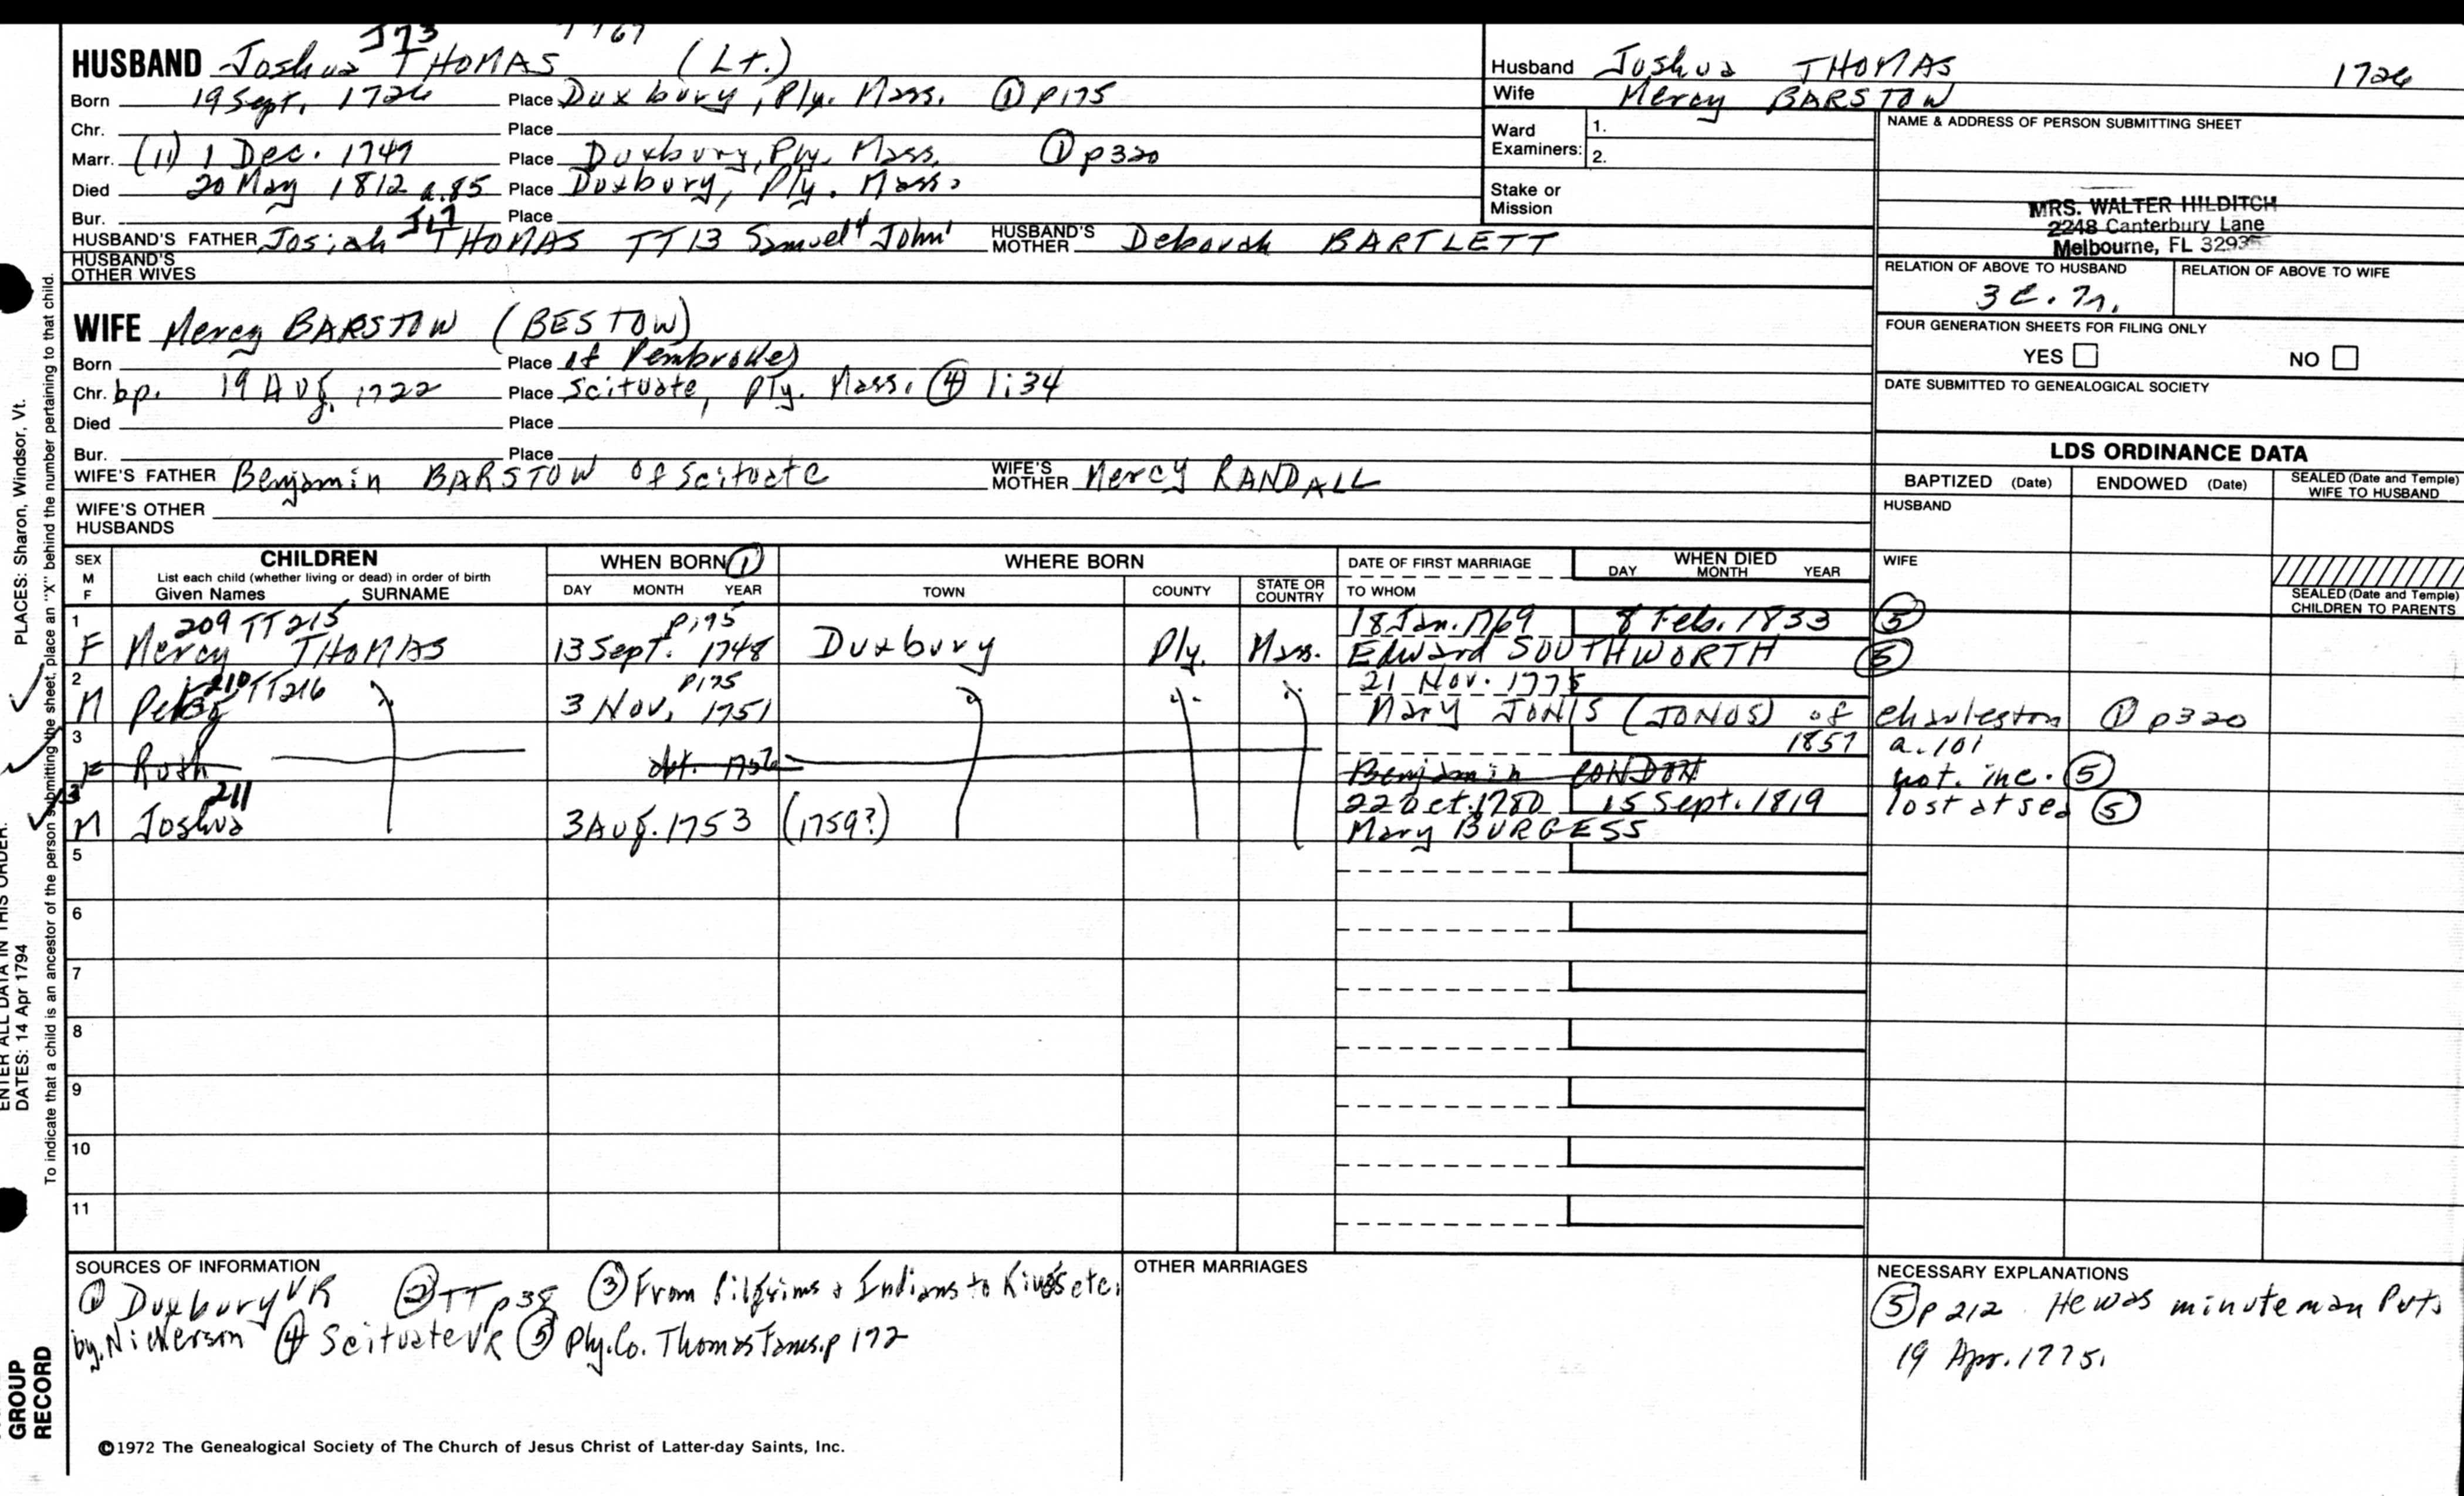 J73
HUSBAND Joshua THOMAS (Lt.)
Born 19 Sept. 1726 Place Duxbury, Ply. Mass. ① p175
Chr. Place
Marr. (11) 1 Dec. 1747 Place Duxbury, Ply. Mass. ① p320
Died 20 May 1812 a.85 Place Duxbury, Ply. Mass.
Bur. Place
HUSBAND'S FATHER Josiah THOMAS TT13 Samuel John HUSBAND'S MOTHER Deborah BARTLETT
HUSBAND'S OTHER WIVES
Husband Joshua THOMAS 1726
Wife Mercy BARSTOW
Ward Examiners: 1.
2.
Stake or Mission
NAME & ADDRESS OF PERSON SUBMITTING SHEET
MRS. WALTER HILDITCH
2248 Canterbury Lane
Melbourne, FL 32935
RELATION OF ABOVE TO HUSBAND RELATION OF ABOVE TO WIFE
FOUR GENERATION SHEETS FOR FILING ONLY
YES NO
DATE SUBMITTED TO GENEALOGICAL SOCIETY
WIFE Mercy BARSTOW (BESTOW)
Born Place of Pembroke)
Chr. bp. 19 Aug. 1722 Place Scituate, Ply. Mass. ④ 1:34
Died Place
Bur. Place
WIFE'S FATHER Benjamin BARSTOW of Scituate WIFE'S MOTHER Mercy RANDALL
WIFE'S OTHER HUSBANDS
LDS ORDINANCE DATA
BAPTIZED (Date) ENDOWED (Date) SEALED (Date and Temple) WIFE TO HUSBAND
HUSBAND
WIFE
SEALED (Date and Temple) CHILDREN TO PARENTS
SEX M F CHILDREN WHEN BORN ① WHERE BORN DATE OF FIRST MARRIAGE WHEN DIED
List each child (whether living or dead) in order of birth
Given Names SURNAME DAY MONTH YEAR TOWN COUNTY STATE OR COUNTRY TO WHOM DAY MONTH YEAR
1 209 TT215 p175 18 Jan. 1769 8 Feb. 1833 ⑤
F Mercy THOMAS 13 Sept. 1748 Duxbury Ply. Mass. Edward SOUTHWORTH ⑤
2 210 TT216 p175 21 Nov. 1775
M 3 Nov. 1751 Mary JONIS (JONOS) of Charleston ① p320
3 1857 a.101
F Ruth Benjamin LONDON not. inc. ⑤
3 211 22 Oct. 1780 15 Sept. 1819 lost at sea ⑤
M Joshua 3 Aug. 1753 (1759?) Mary BURGESS
5
6
7
8
9
10
11
SOURCES OF INFORMATION
① Duxbury VR ② TT p38 ③ From Pilgrims & Indians to Kings etc.
by. Nickerson ④ Scituate VR ⑤ Ply. Co. Thomas Fams. p 172
OTHER MARRIAGES
NECESSARY EXPLANATIONS
⑤ p 212 He was minute man Pvt.
19 Apr. 1775.
©1972 The Genealogical Society of The Church of Jesus Christ of Latter-day Saints, Inc.
PLACES: Sharon, Windsor, Vt.
To indicate that a child is an ancestor of the person submitting the sheet, place an "X" behind the number pertaining to that child.
ENTER ALL DATA IN THIS ORDER:
DATES: 14 Apr 1794
GROUP
RECORD